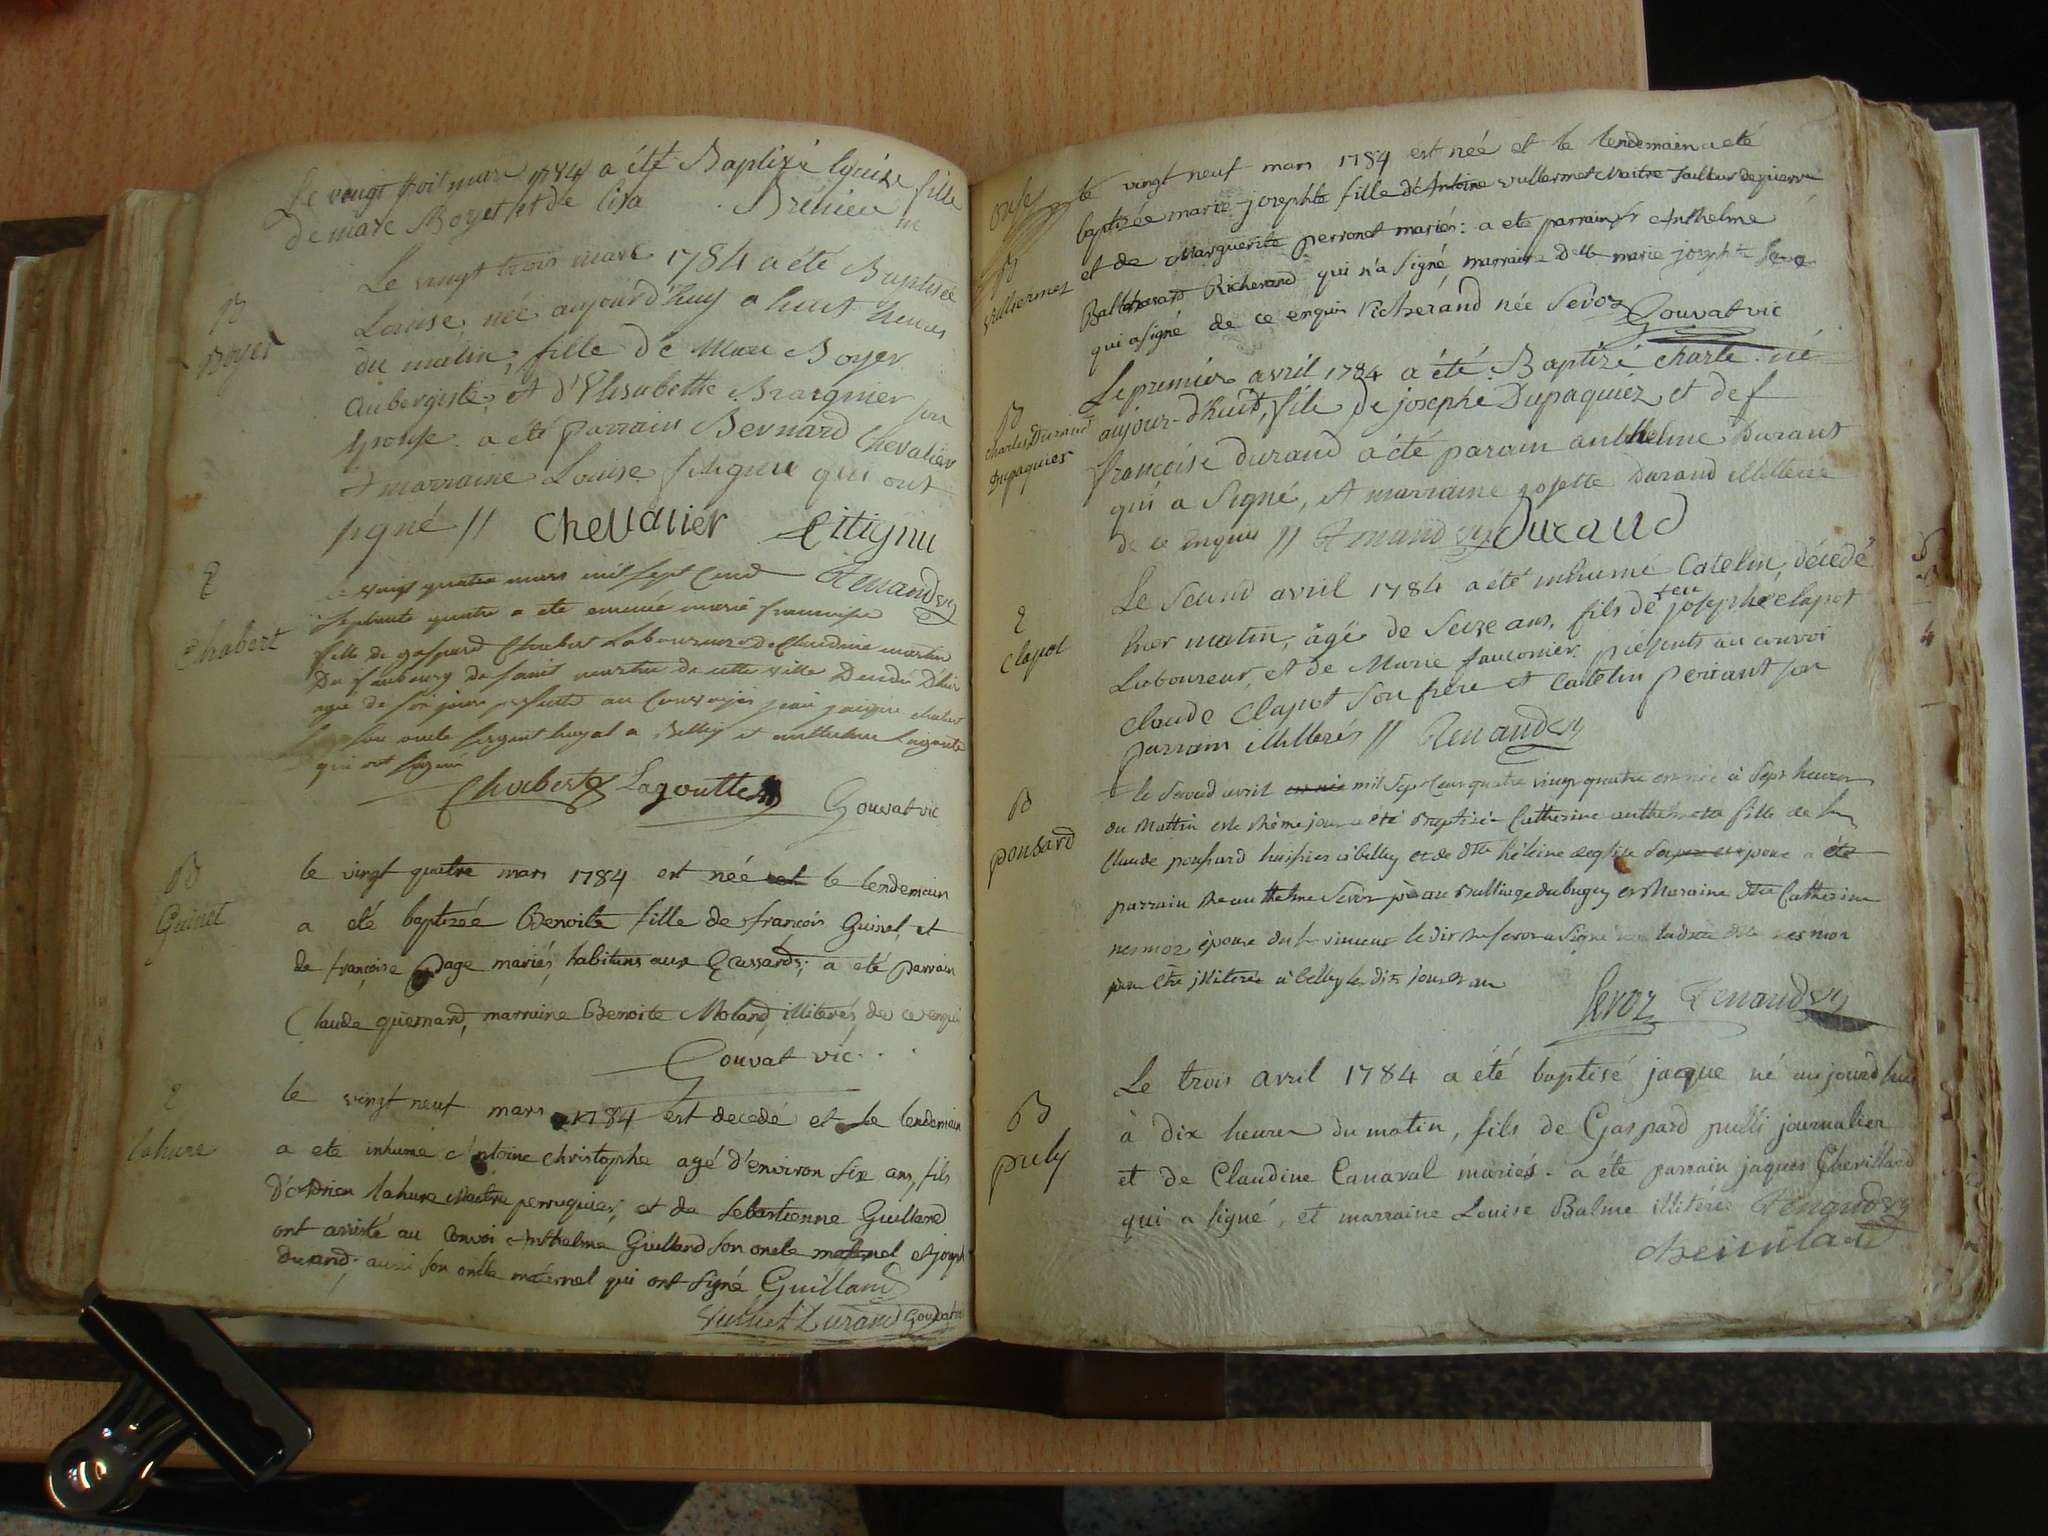 Le vingt trois mars 1784 a été Baptizé louise fille
de marc Boyer et de lisa Brénieu
B
Boyer
Le vingt trois mars 1784 a été Baptisée
Louise, née aujourd'huy a huit heures
du matin, fille de Marc Boyer
aubergiste, et d'Elisabethe
épouse. a été parrain Bernard Chevalier
et marraine Louise qui ont
signé // Chevalier
Renaud vic
Chabert
le vingt quatre mars mil sept cent
septante quatre a été marie francoise
fille de gaspard Chabert Laboureur et de Claudine martin
Du faubourg de saint martin de cette ville Decedée
agée de six jours presents au Convoy jean jacques chabert
son oncle sergent Royal a Belley et anthelme Lagoutte
qui ont signé
Chabert Lagoutte Gouvat vic
B
Guinet
le vingt quatre mars 1784 est née et le lendemain
a eté baptizée Benoite fille de françois Guinet, et
de françoise page mariés, habitans aux Ecassards; a eté parrain
Claude quemard, marraine Benoite Moland, illiterés, de ce enquis
Gouvat vic.
lahure
le vingt neuf mars 1784 est decedé et le lendemain
a ete inhumé Antoine christophe agé d'environ six ans, fils
d'Adrien lahure Maitre perruquier, et de Sebastienne Guilland
ont assisté au convoi Anthelme Guilland son oncle maternel et joseph
Durand aussi son oncle maternel qui ont signé Guilland
Durand Gouvat vic
B
Vulliermet
le vingt neuf mars 1784 est née et le lendemain a eté
baptizée marie-josephte fille d'Antoine vullermet Maitre tailleur de pierre
et de Marguerite perronet mariés: a ete parrain sr Anthelme
Balthazard Richerand qui n'a signé marraine Delle marie josephte
qui a signé de ce enquis Richerand née Sevoz Gouvat vic
B
charles Durand
Dupaquier
Le premier avril 1784 a été Baptizé charle né
aujour-d'huit, fils de josephe Dupaquiez et de f
françoise durand a été parain anthelme Durant
qui a signé, et marraine josette Durand illiterée
de ce enquis // Renaud vic Durand
Clapot
Le second avril 1784 a été inhumé Catelin, décédé
hier matin, âgé de seize ans, fils de feu josephe Clapot
Laboureur, et de Marie fauconier. présents au convoi
Claude Clapot son frère et Catelin perrant son
parrain illiterés // Renaud vic
B
ponsard
le second avril est née mil sept cent quatre vingt quatre est née à sept heures
du Mattin et le même jour a été Baptizée Catherine anthelmette fille de sr
Claude ponsard huissier à belley et de dlle héleine son epouse a été
parrain Me anthelme Sevoz au Balliage du bugey et Maraine dlle Catherine
nesmoz épouse du sr vincent ledit Me sevoz a signé non ladite dlle nesmoz
pour être illiterée à belley les dits jour et an
Sevoz Renaud vic
B
puly
Le trois avril 1784 a été baptisé jacque né aujourd'hui
à dix heures du matin, fils de Gaspard pulli journalier
et de Claudine Canaval mariés. a été parrain jaques Chevilland
qui a signé, et marraine Louise Balme illitérée Renaud vic